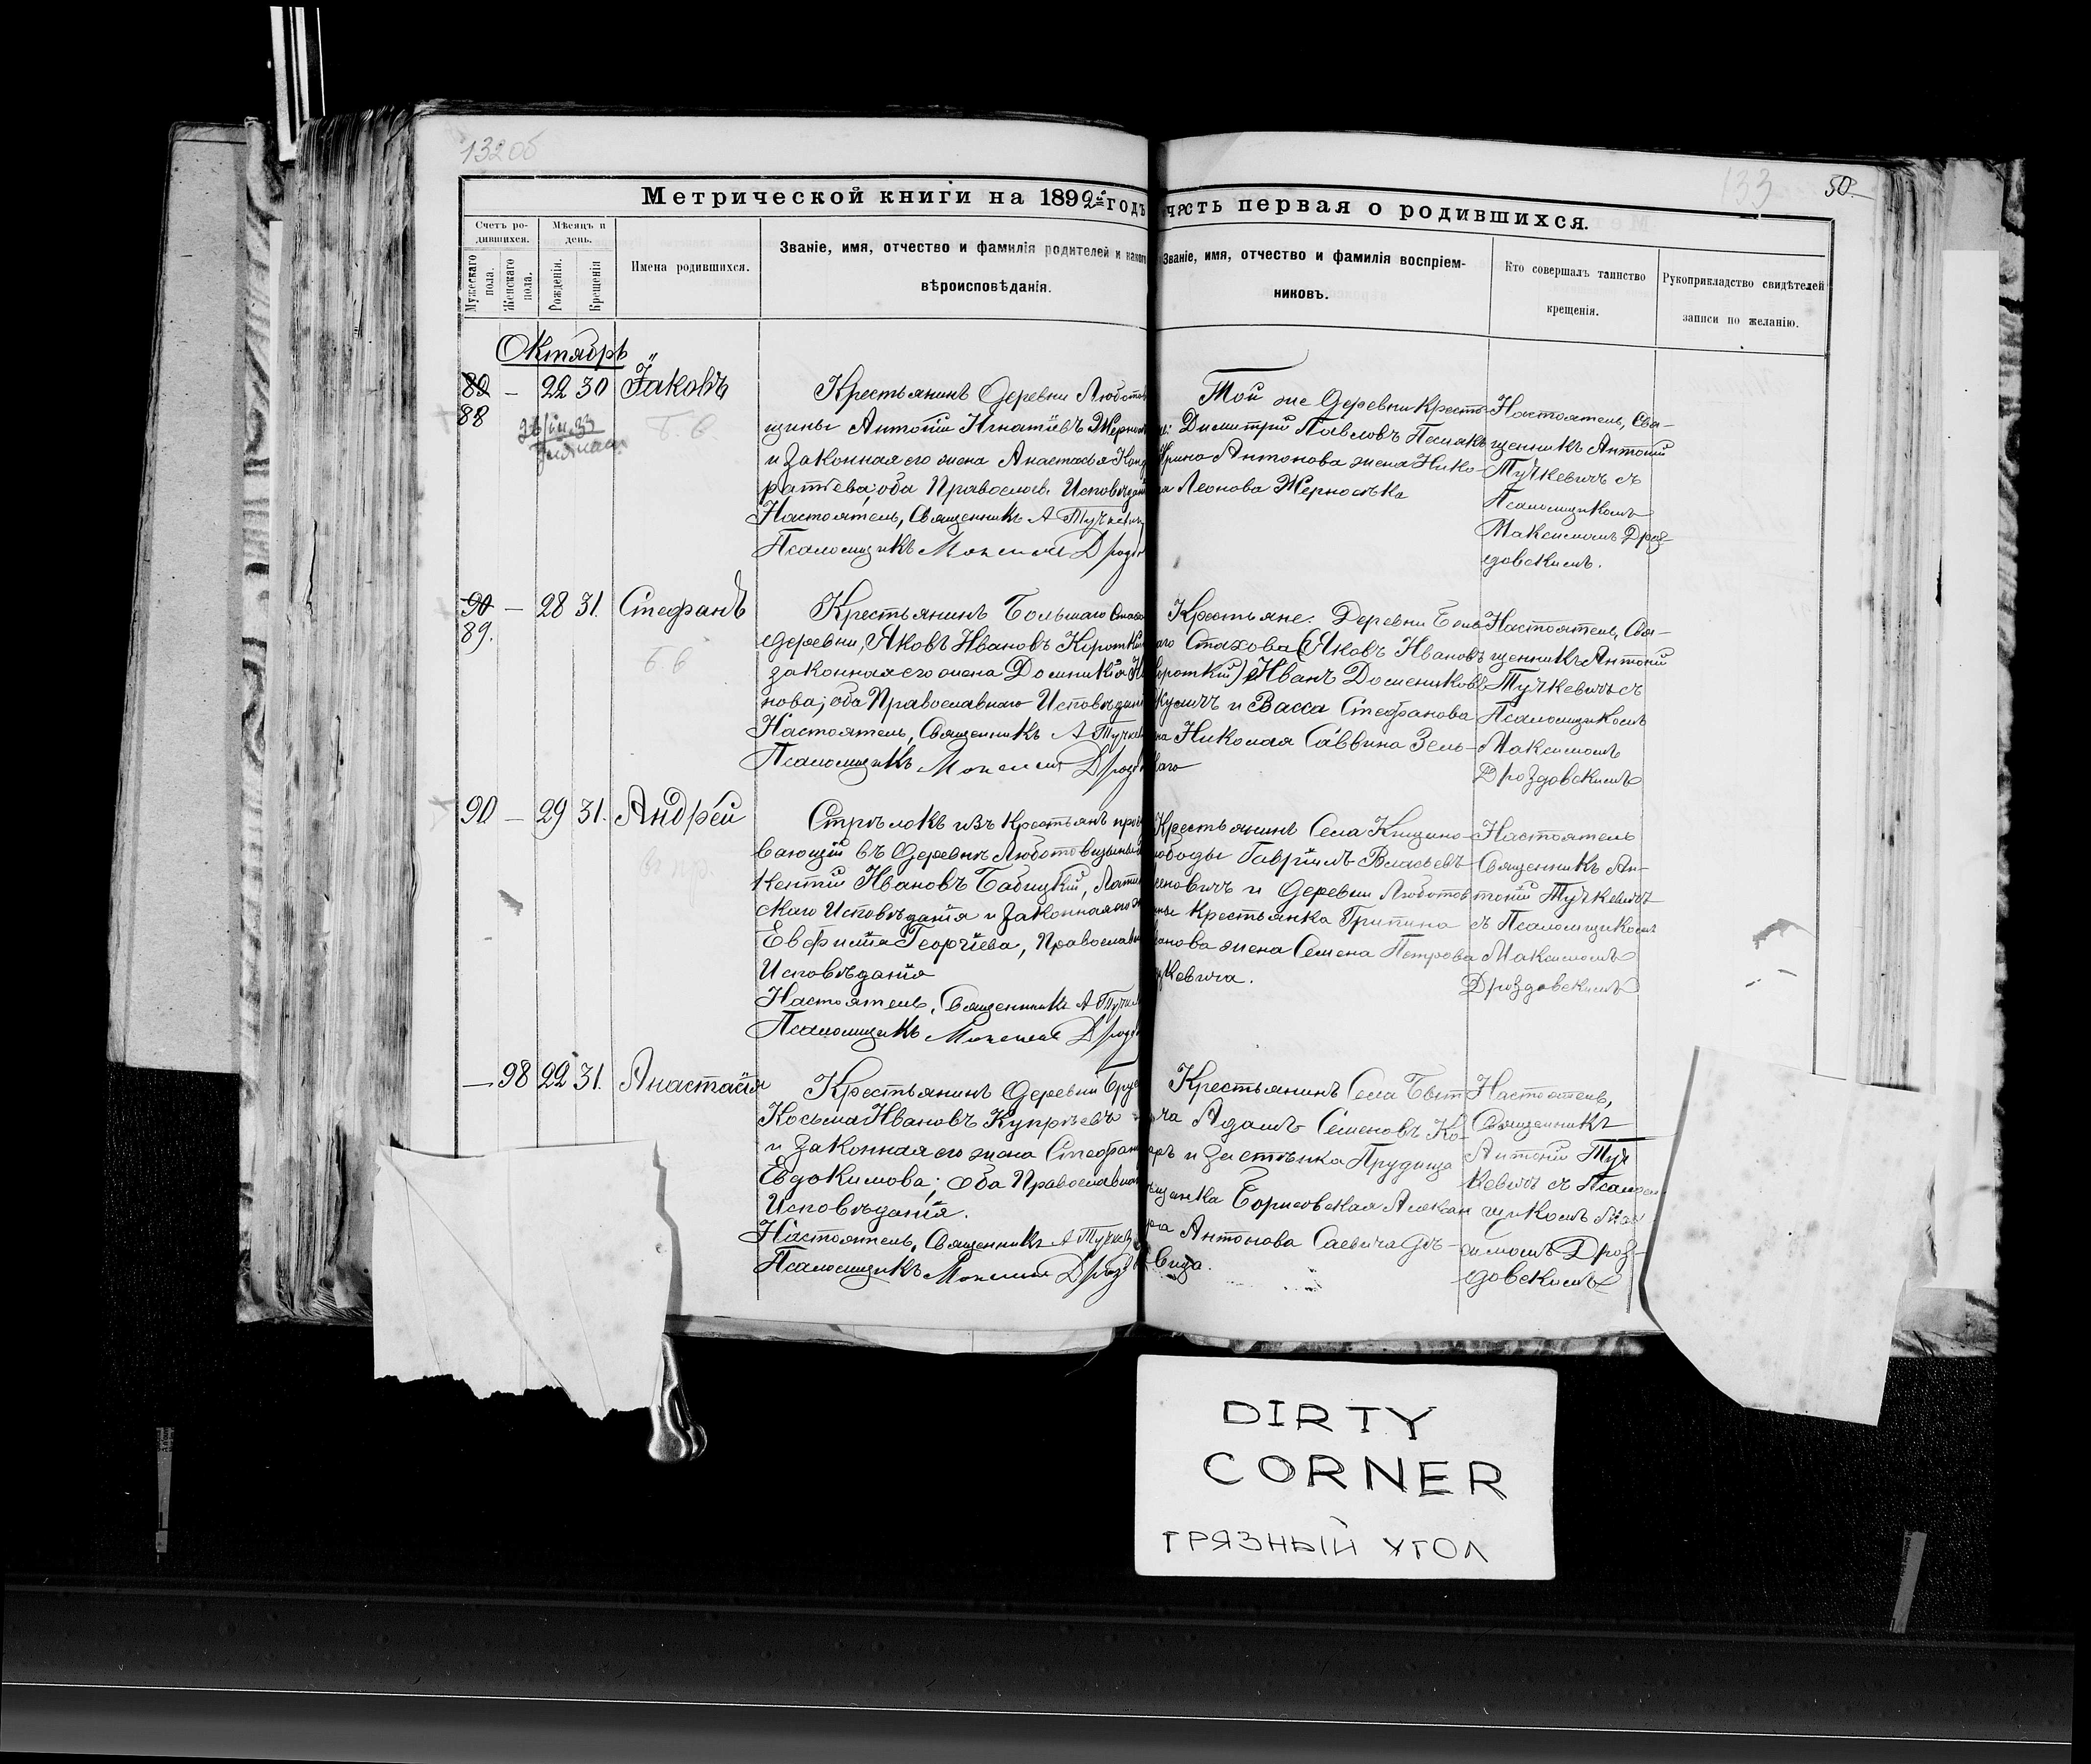 132об
133
50.
Метрической книги на 1892й годъ
часть первая о родившихся.
Счетъ ро-
дившихся.
Мужескаго
пола.
Женскаго
пола.
Мѣсяцъ и
день.
Рожденія.
Крещенія
Имена родившихся.
Званіе, имя, отчество и фамилія родителей и какого
вѣроисповѣданія.
Званіе, имя, отчество и фамилія воспріем-
никовъ.
Кто совершалъ таинство
крещенія.
Рукоприкладство свидѣтелей
записи по желанію.
Октябрь
89 — 22 30 Іаковъ
88
Б. б
Крестьянинъ деревни Люботов
щины Антоній Игнатіевъ Жерно
и законная его жена Анастасія Конд
ратіева; оба Православ. Исповѣдан
Настоятель, Священникъ А Тучкевич
Псаломщикъ Максимъ Дрозд
Той же деревни кресть-
Димитрій Павловъ
Ирина Антонова жена Нико-
ла Леонова Жерносѣка
Настоятель, Свя-
щенникъ Антоній
Тучкевичъ съ
Псаломщикомъ
Максимомъ Дроз-
довскимъ.
90 — 28 31. Стефанъ
89.
Б. б
Крестьянинъ Большаго Стахо
деревни, Яковъ Ивановъ Коротки
законная его жена Домникія
нова; оба Православнаго Исповѣдан
Настоятель, Священникъ А Тучкев
Псаломщикъ Максимъ Дрозд
Крестьяне: Деревни Боль
аго Стахова (Яковъ Ивановъ
Короткій) Иванъ Домениковъ
и Васса Стефанова
на Николая Саввина Зель-
каго
Настоятель, Свя-
щенникъ Антоній
Тучкевичъ съ
Псаломщикомъ
Максимомъ
Дроздовскимъ
90 — 29 31. Андрей
Стрѣлокъ изъ крестьянъ прож
вающій въ деревнѣ Люботовщинѣ
кентій Ивановъ Бабицкій, Латин
скаго Исповѣданія и законная его ж
Евфимія Георгіева, Православн
Исповѣданія
Настоятель, Священникъ А Тучкев
Псаломщикъ Максимъ Дрозд
Крестьянинъ Села Кищино-
ободы Гавріилъ Власьевъ
еновичъ и деревни Люботов
ины крестьянка Грипина
ванова жена Семена Петрова
укевича.
Настоятель
Священникъ Ан-
тоній Тучкевичъ
съ Псаломщикомъ
Максимомъ
Дроздовскимъ
— 98 22 31. Анастасія
Крестьянинъ деревни Брус
Косьма Ивановъ Купрѣевъ
и законная его жена Стефани
Евдокимова; оба Православна
Исповѣданія.
Настоятель, Священникъ А Тучкев
Псаломщикъ Максимъ Дрозд
Крестьянинъ Села Быт
ча Адамъ Семеновъ Ко-
аръ и застѣнка Прудища
ѣщанка Борисовская Алексан
ра Антонова Саевича дѣ-
вица.
Настоятель,
Священникъ
Антоній Туч
кевичъ съ Псалом-
щикомъ Мак
симомъ Дроз-
довскимъ
DIRTY
CORNER
ГРЯЗНЫЙ УГОЛ